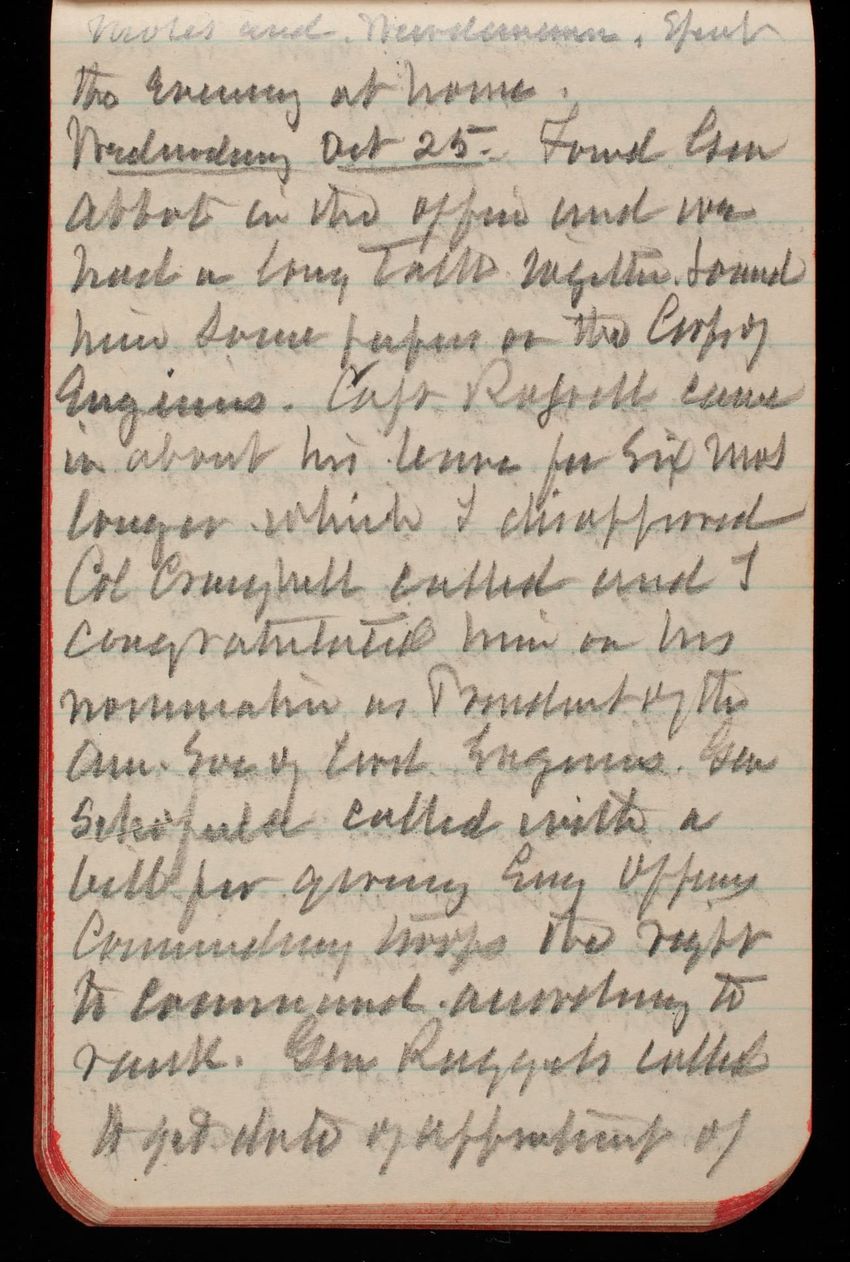 Notes and Spent
the Evening at home.
Wednesday Oct 25. Found Gen
Abbot in the office and we
had a long talk together. Loaned
him some papers on the Corps of
Engineers. Capt. came
in about his leave for Six Mos
longer which I disapproved
Col Craighill called and I
congratulated him on his
nomination as President of the
Am. Soc of Civil Engineers. Gen
Schofield called with a
bill for giving Eng Officers
Commanding troops the right
to command according to
rank. Gen Ruggels called
to get date of appointment of